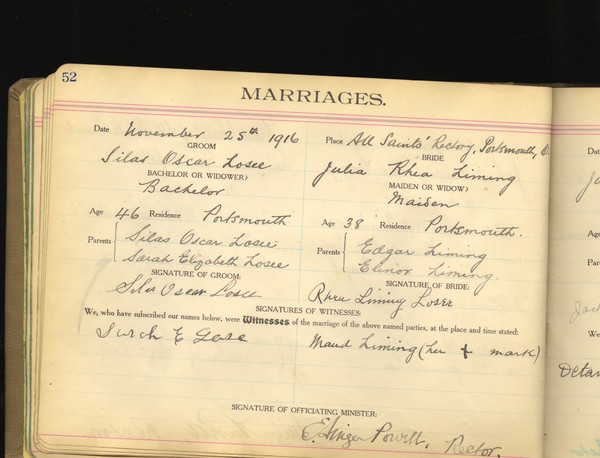 52
MARRIAGES.
Date November 25th 1916 Place All Saints' Rectory, Portsmouth, O.
GROOM BRIDE
Silas Oscar Losee Julia Rhea Liming
BACHELOR OR WIDOWER? MAIDEN OR WIDOW?
Bachelor Maiden
Age 46 Residence Portsmouth Age 38 Residence Portsmouth.
Parents Silas Oscar Losee Parents Edgar Liming
Sarah Elizabeth Losee Elinor Liming.
SIGNATURE OF GROOM: SIGNATURE OF BRIDE:
Silas Oscar Losee Rhea Liming Losee
SIGNATURES OF WITNESSES:
We, who have subscribed our names below, were Witnesses of the marriage of the above named parties, at the place and time stated:
E Maud Liming (her + mark)
SIGNATURE OF OFFICIATING MINISTER:
Powell, Rector.
Age
We